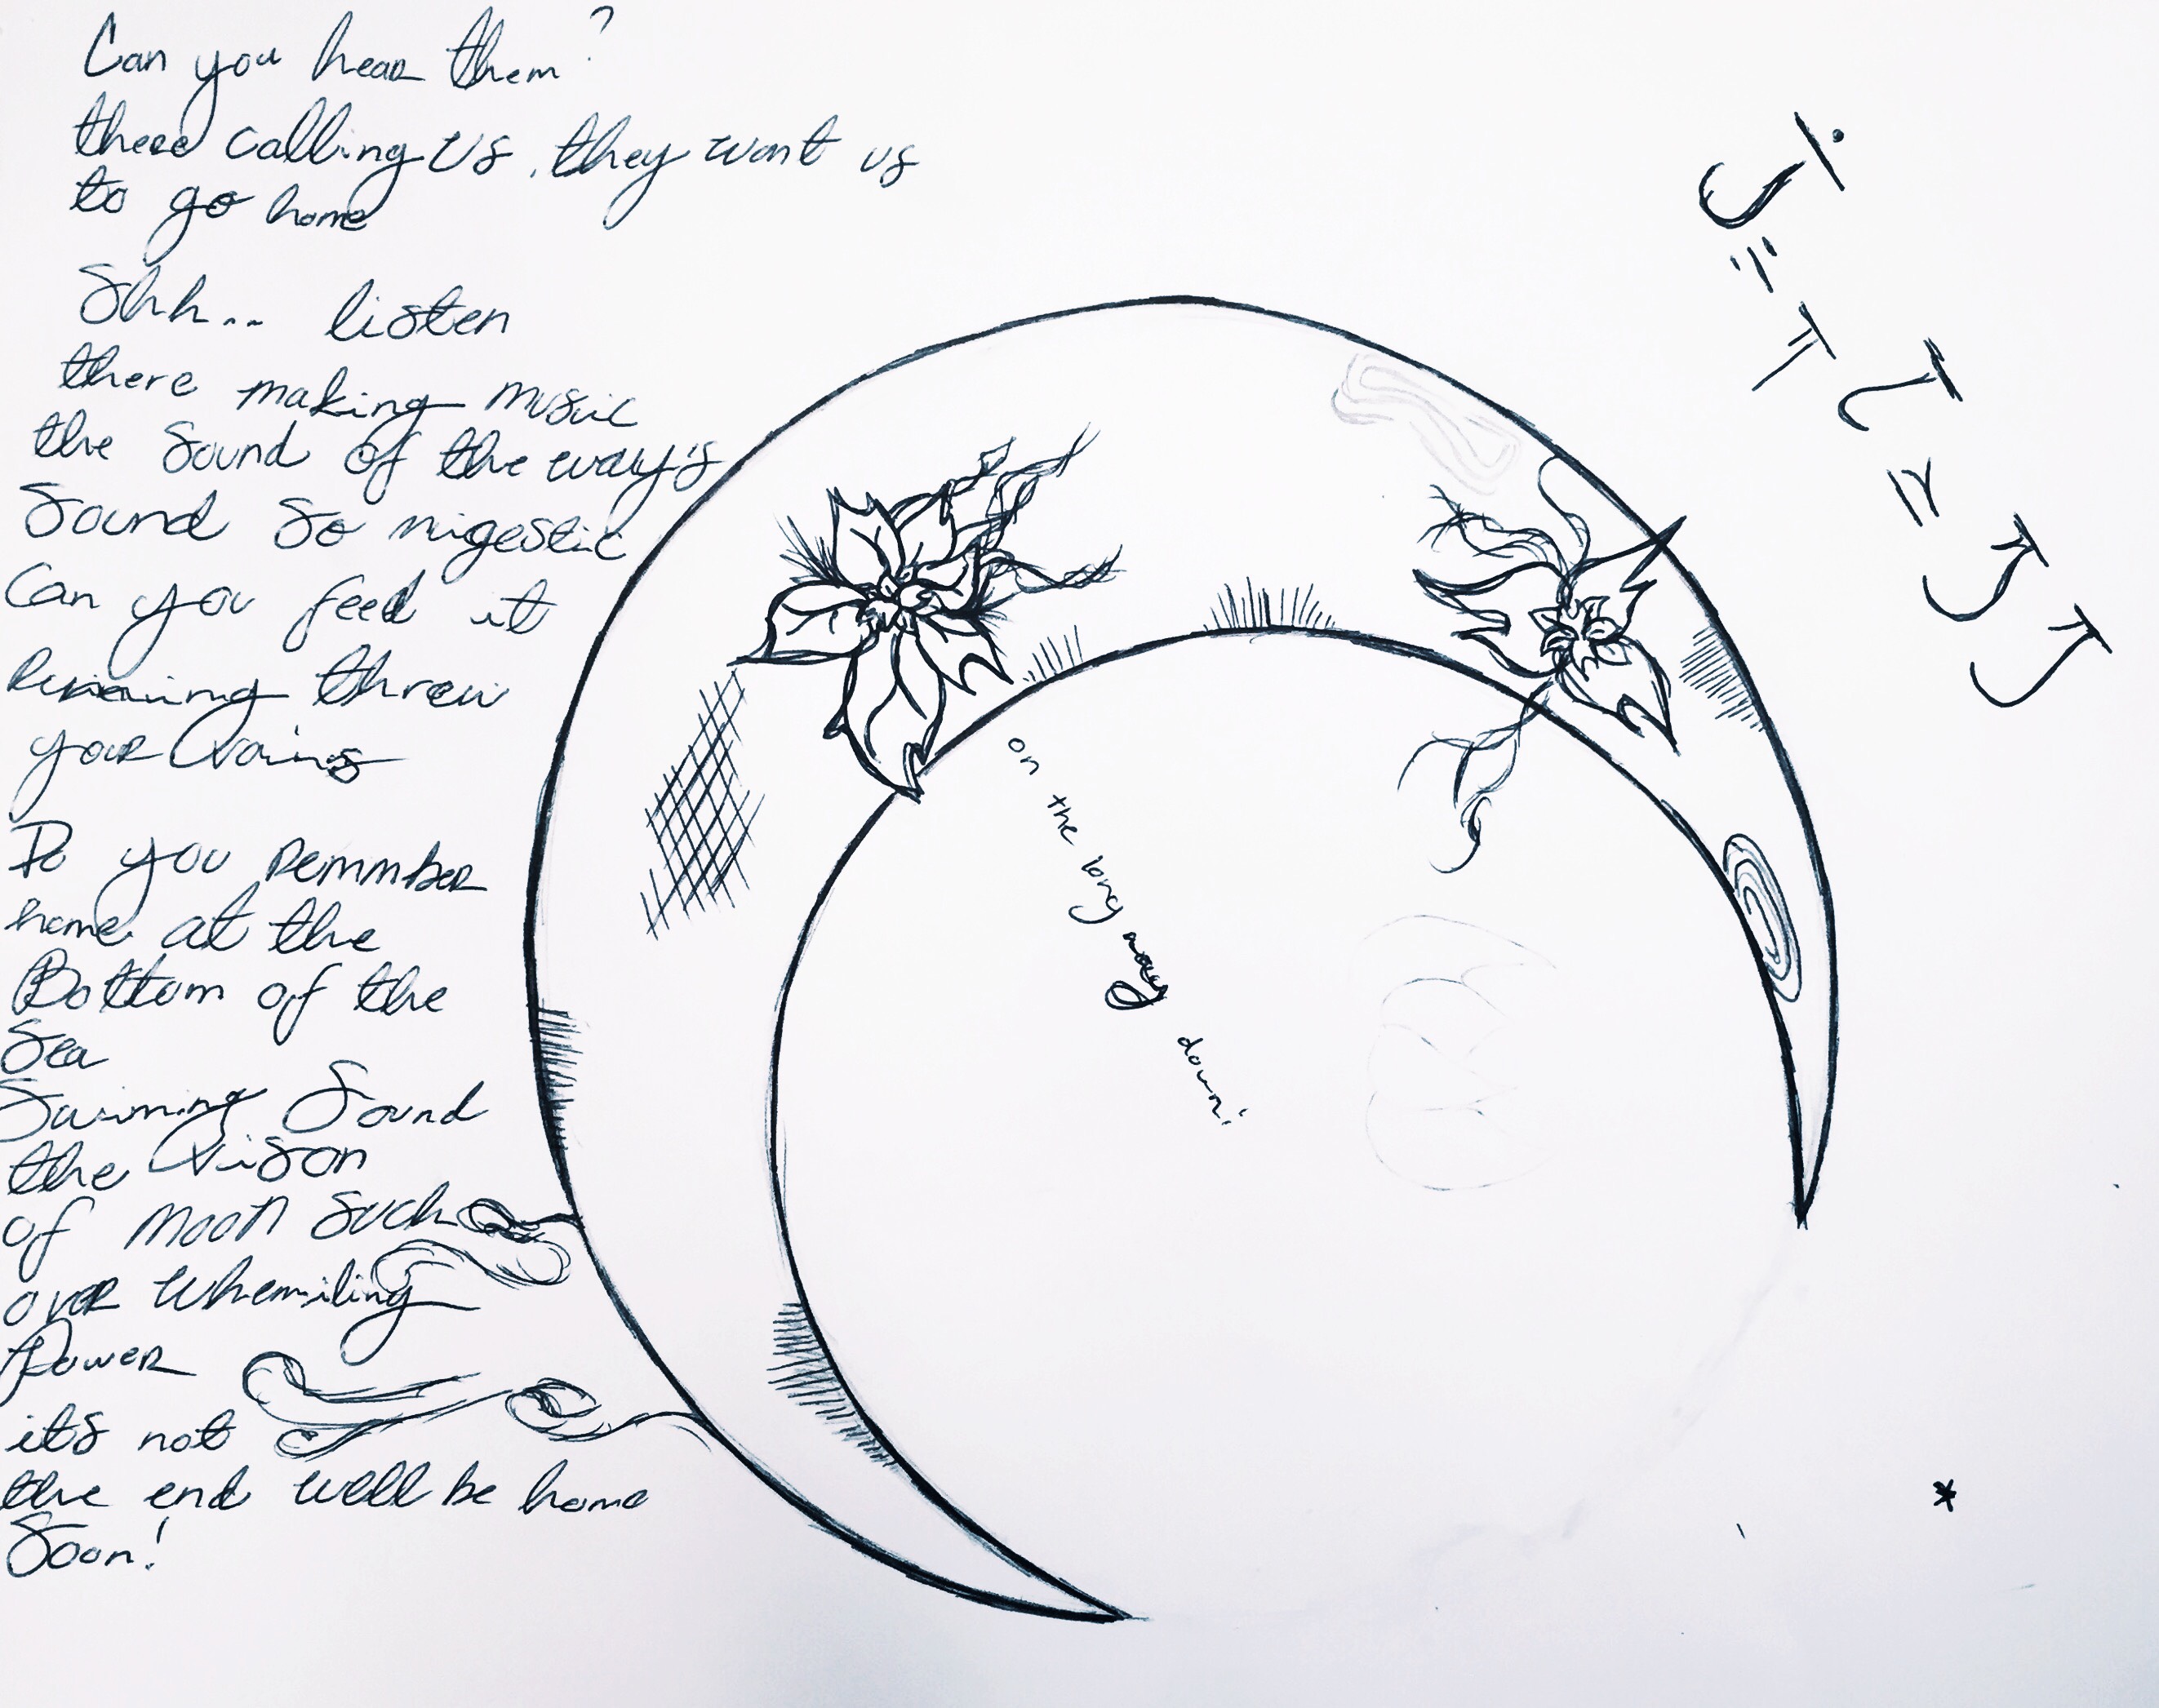 Can you hear them?
there calling us, they want us
to go home
Shh.. listen
there making music
the Sound of the wavy's
Sound So migestic
Can you feel it
Running threw
your vains
Do you remmber
home at the
Bottom of the
Sea
Swiming Sound
the vison
of moon such
over whemiling
Power
it's not
the end well be home
Soon!
on the long way down!